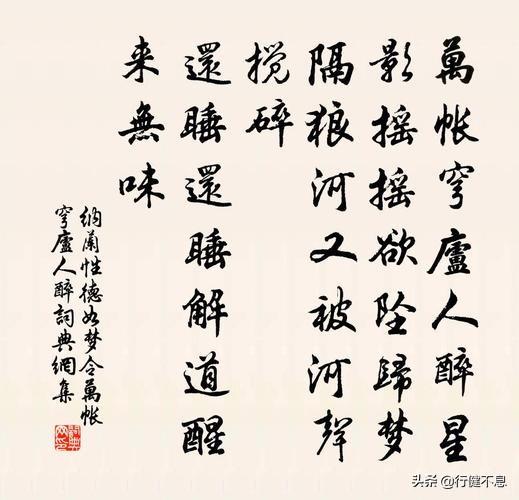 萬帳穹廬人醉星
影摇摇欲坠歸梦
隔狼河又被河聲
搅碎
還睡還睡解道醒
来無味
納蘭性德如梦令萬帳
穹廬人醉詞典網集
头条 @行健不息